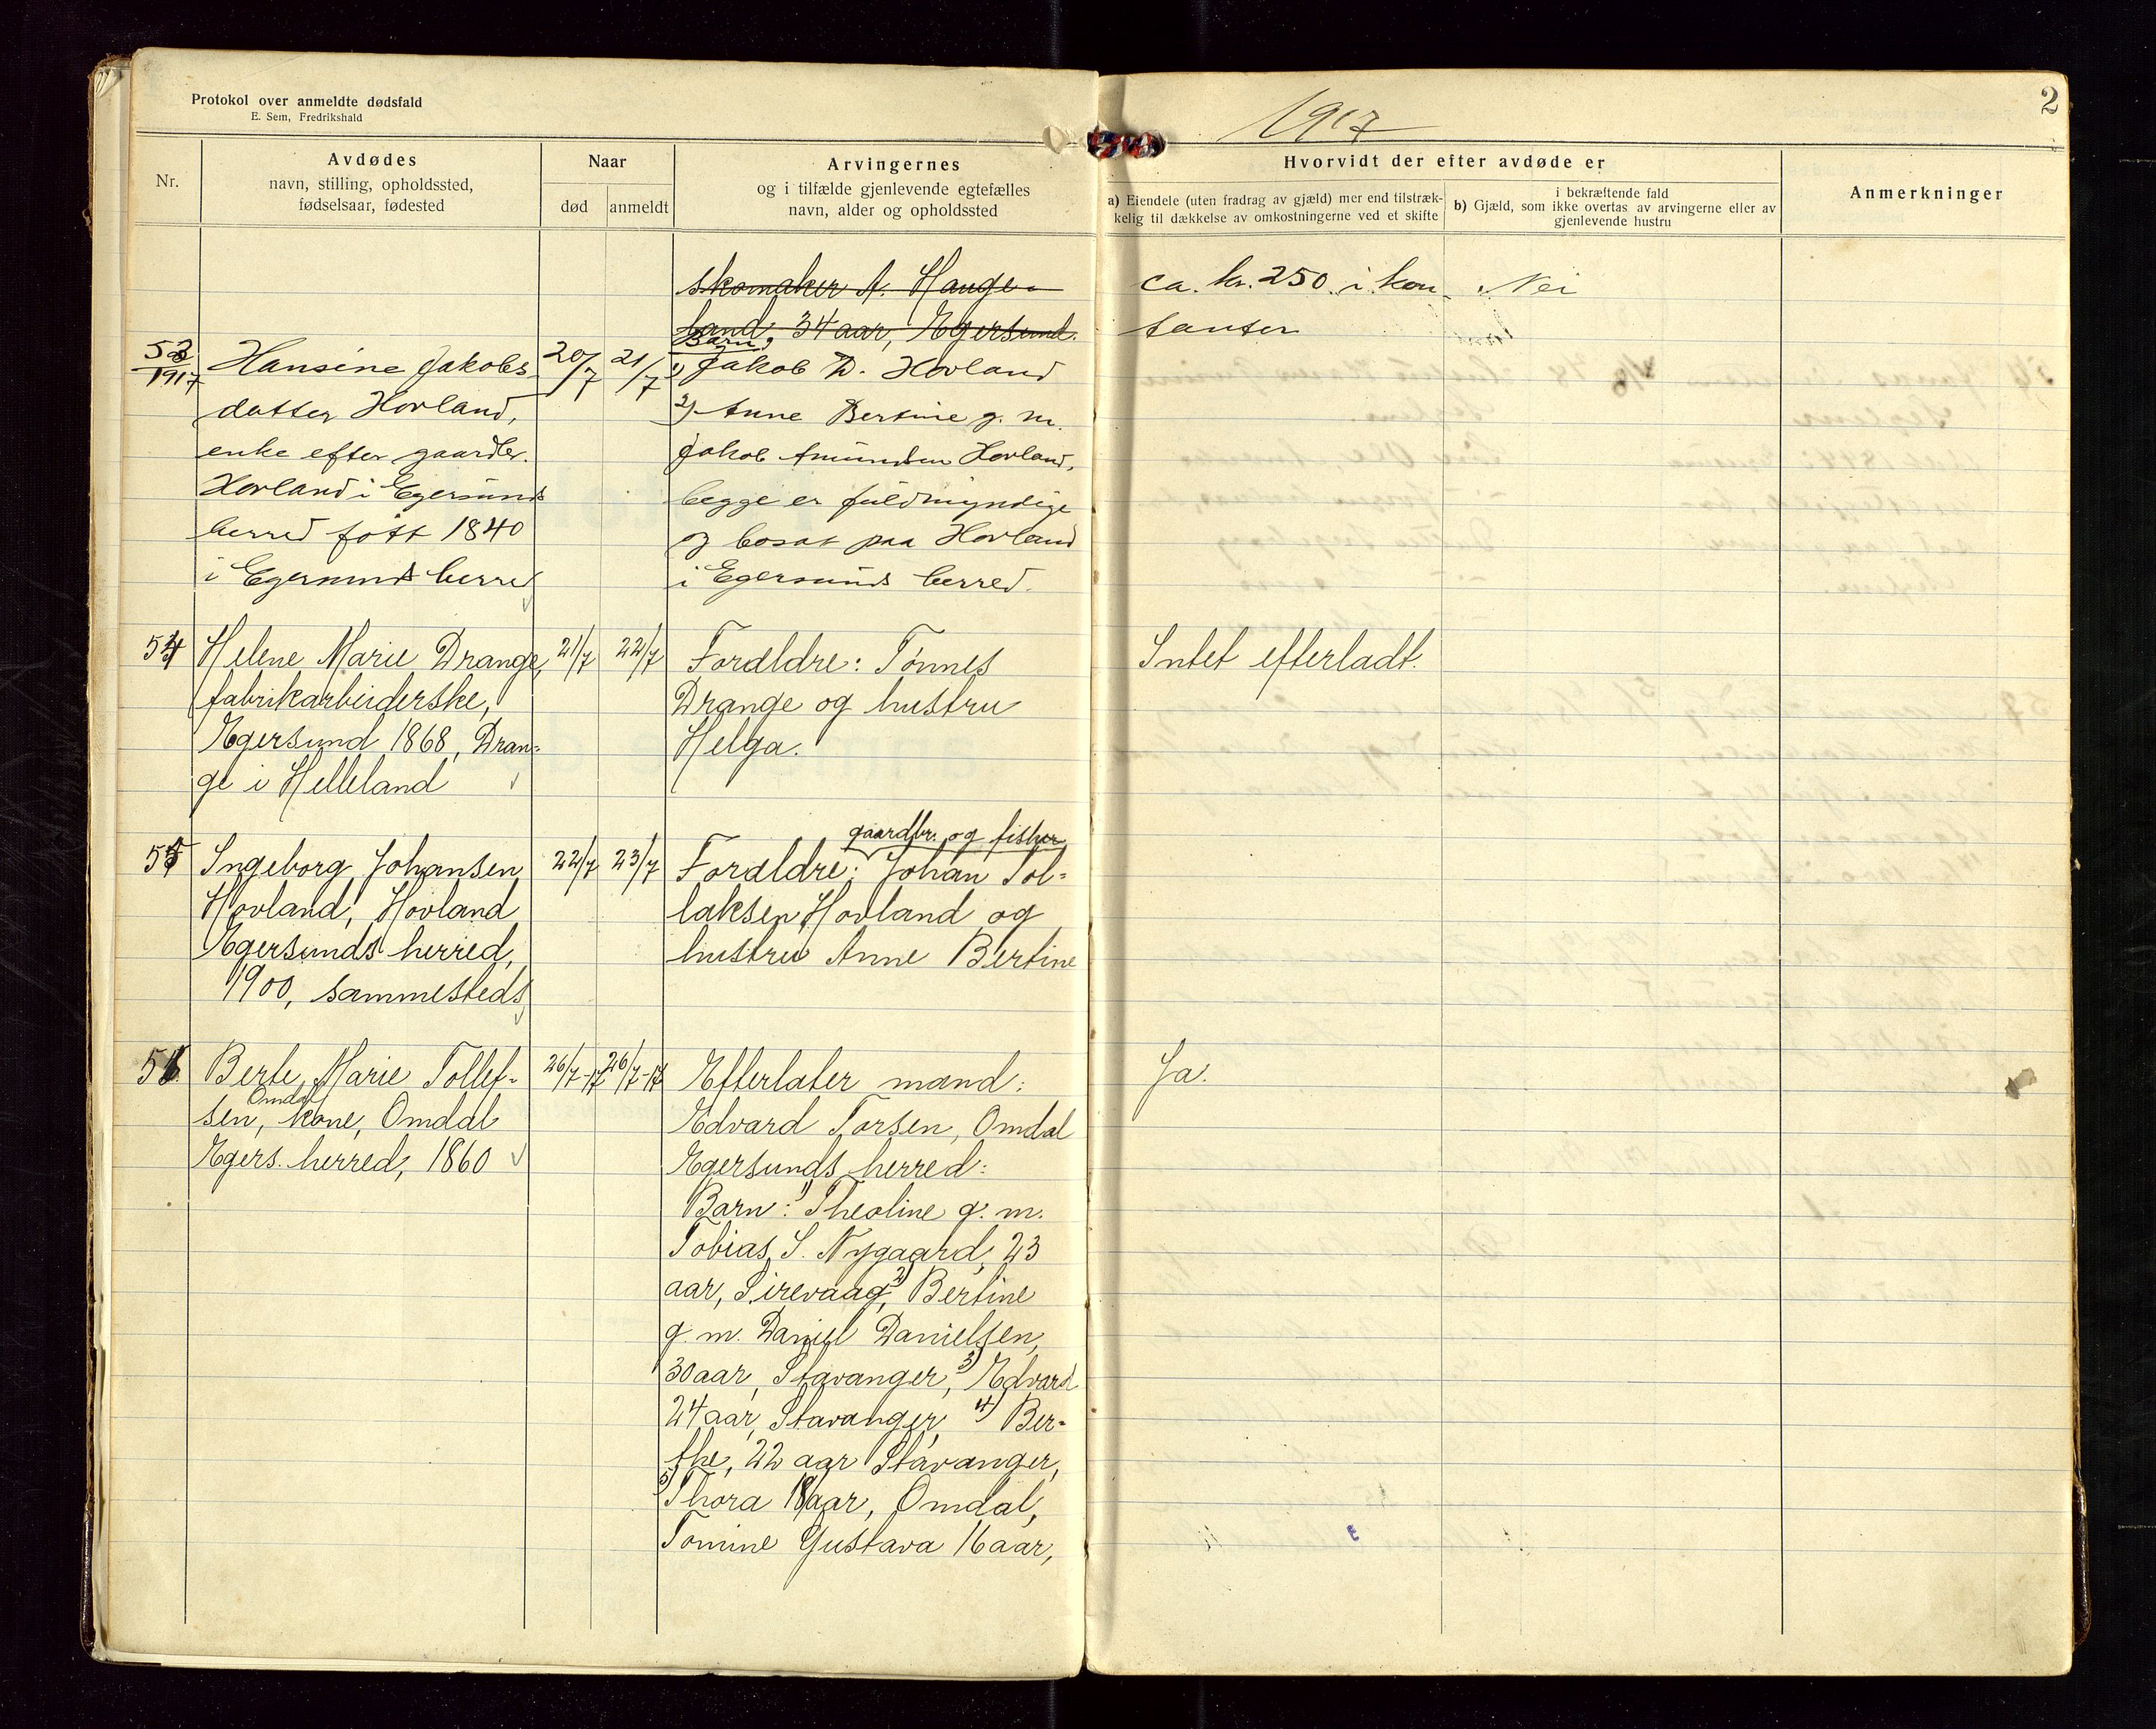 Protokol over anmeldte dødsfald
E. Sem, Fredrikshald
1917
2
Nr.
Avdødes
navn, stilling, opholdssted,
fødselsaar, fødested
Naar
død
anmeldt
Arvingernes
og i tilfælde gjenlevende egtefælles
navn, alder og opholdssted
Hvorvidt der efter avdøde er
a) Eiendele (uten fradrag av gjæld) mer end tilstræk-
kelig til dækkelse av omkostningerne ved et skifte
i bekræftende fald
b) Gjæld, som ikke overtas av arvingerne eller av
gjenlevende hustru
Anmerkninger
skomaker A. Hauge-
land, 34 aar, Egersund.
ca. kr. 250 i kon-
tanter
Nei
53
1917
Hansine Jakobs-
datter Hovland,
enke efter gaardbr.
Hovland i Egersunds
herred født 1840
i Egersunds herred
20/7
21/7
Barn:
1) Jakob D. Hovland
2) Anne Bertine g. m.
Jakob Amundsen Hovland,
begge er fuldmyndige
og bosat paa Hovland
i Egersunds herred.
54
Helene Marie Drange,
fabrikarbeiderske,
Egersund, 1868, Dran-
ge i Helleland
21/7
22/7
Forældre: Tønnes
Drange og hustru
Helga.
Intet efterladt.
55
Ingeborg Johansen
Hovland, Hovland
Egersunds herred,
1900, sammesteds
22/7
23/7
gaardbr. og fisker
Forældre: Johan Tol-
laksen Hovland og
hustru Anne Bertine
56
Berte Marie Tollef-
Omdal
sen, kone, Omdal
Egers. herred, 1860
26/7-17
26/7-17
Efterlater mand:
Edvard Torsen, Omdal
Egersunds herred:
Barn: 1) Theoline g. m.
Tobias S. Nygaard, 23
aar, Sirevaag, 2) Bertine
g. m. Daniel Danielsen,
30 aar, Stavanger, 3) Edvard
24 aar, Stavanger, 4) Ber-
the, 22 aar Stavanger,
5) Thora 18 aar, Omdal,
Tomine Gustava 16 aar,
Ja.